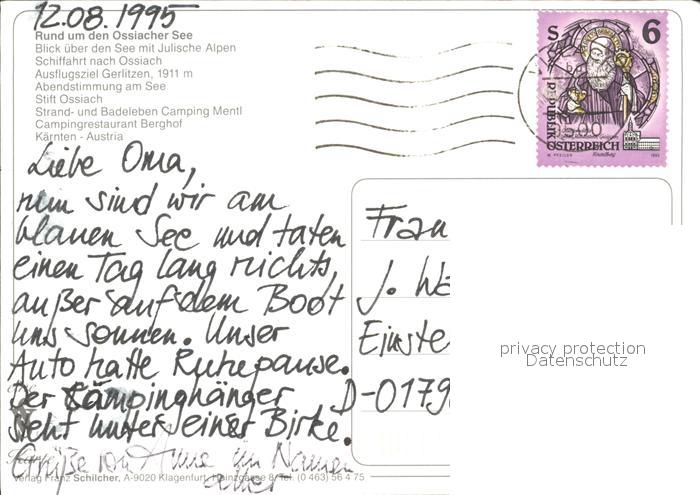 12.08.1995
Rund um den Ossiacher See
Blick über den See mit Julische Alpen
Schiffahrt nach Ossiach
Ausflugsziel Gerlitzen, 1911 m
Abendstimmung am See
Stift Ossiach
Strand- und Badeleben Camping Mentl
Campingrestaurant Berghof
Kärnten - Austria
S 6
REPUBLIK
ÖSTERREICH
Liebe Oma,
nun sind wir am
blauen See und taten
einen Tag lang nichts,
außer auf dem Boot
uns sonnen. Unser
Auto hatte Ruhepause.
Der Campinghänger
steht unter einer Birke.
Grüße von Anna im Namen
aller
Frau
J. Wa
Einste
D-0179
privacy protection
Datenschutz
Verlag Franz Schilcher, A-9020 Klagenfurt, Hainzgasse 8/Tel. (0 463) 56 4 75